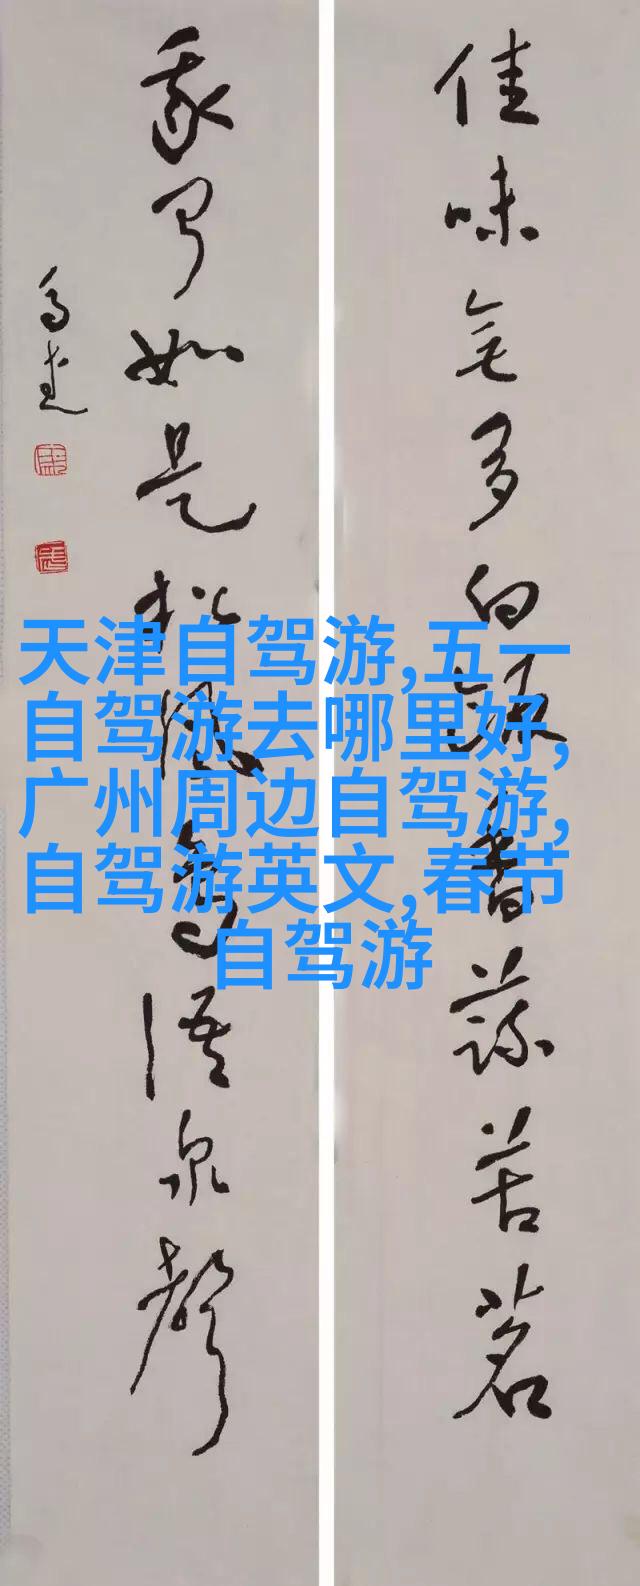 佳味無多白飯香蔬苦茗
我聞如是松風鳥語泉聲
天津自驾游,五一
自驾游去哪里好,
广州周边自驾游,
自驾游英文,春节
自驾游